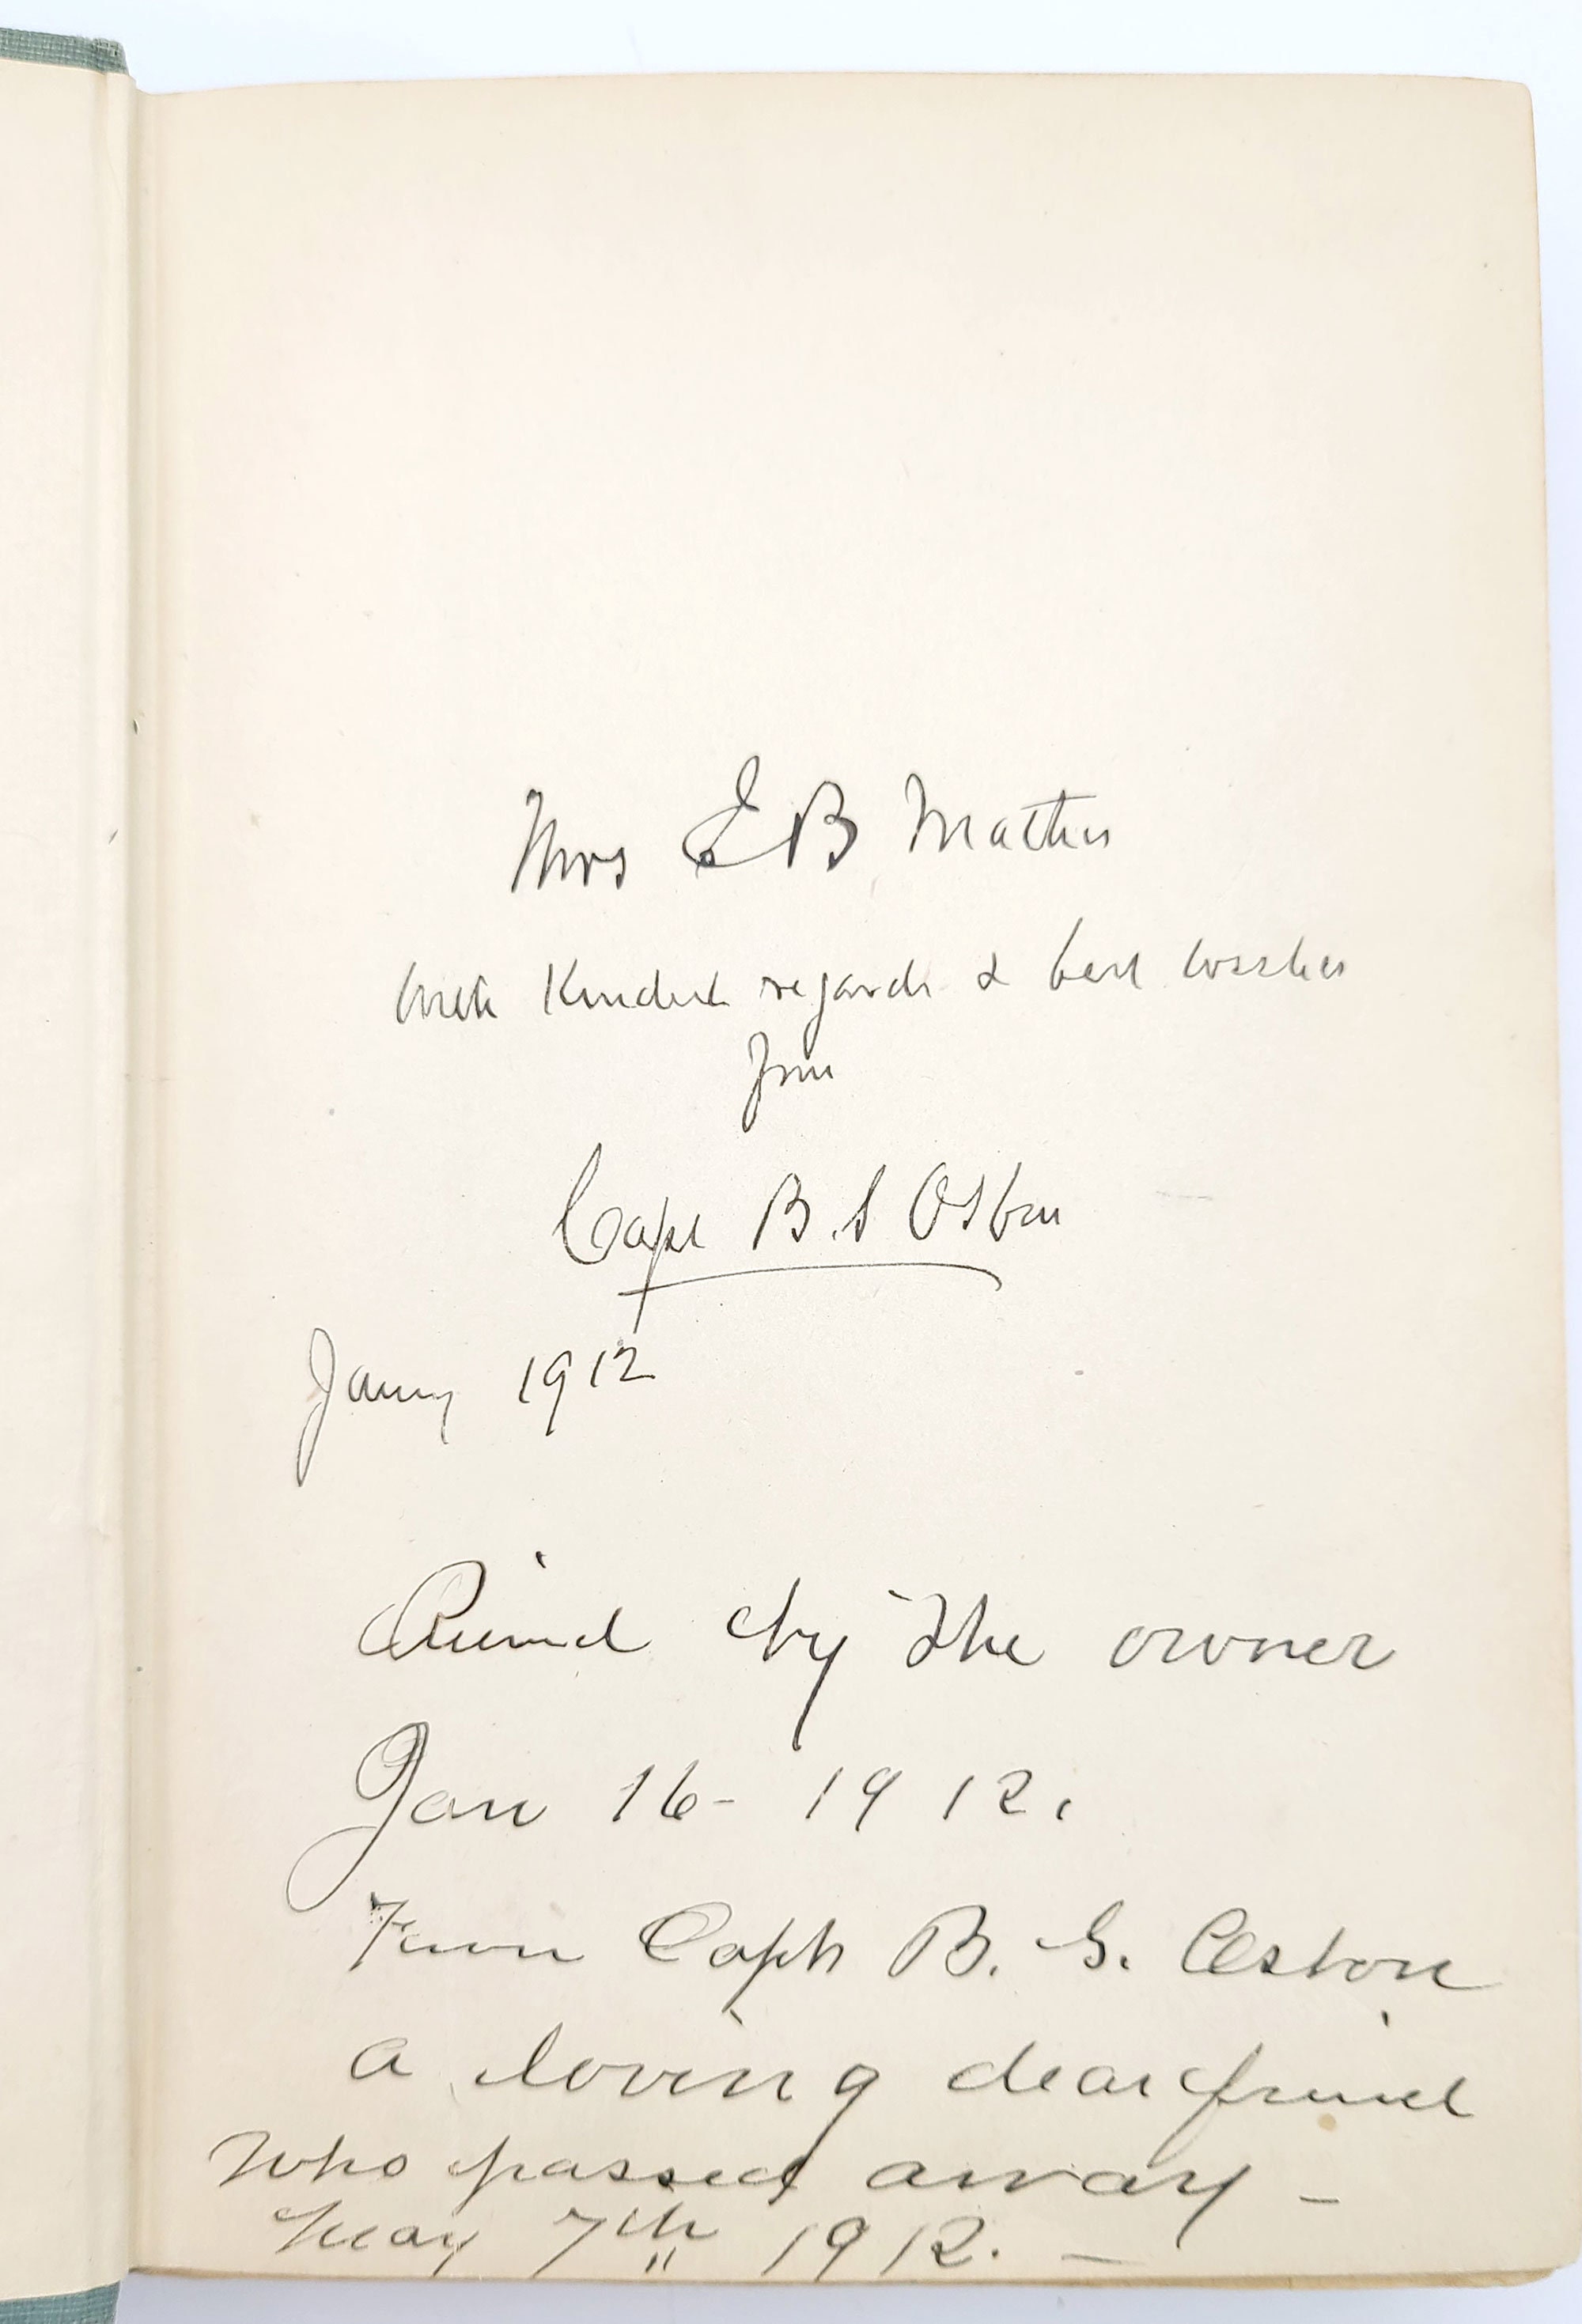 Mrs E B Mather
With Kindest regards & best wishes
from
Capt B. S Osbon
Jany 1912
by the owner
Jan 16 - 1912.
From Capt B. S. Osbon
a loving dear friend
who passed away -
May 7th 1912. -